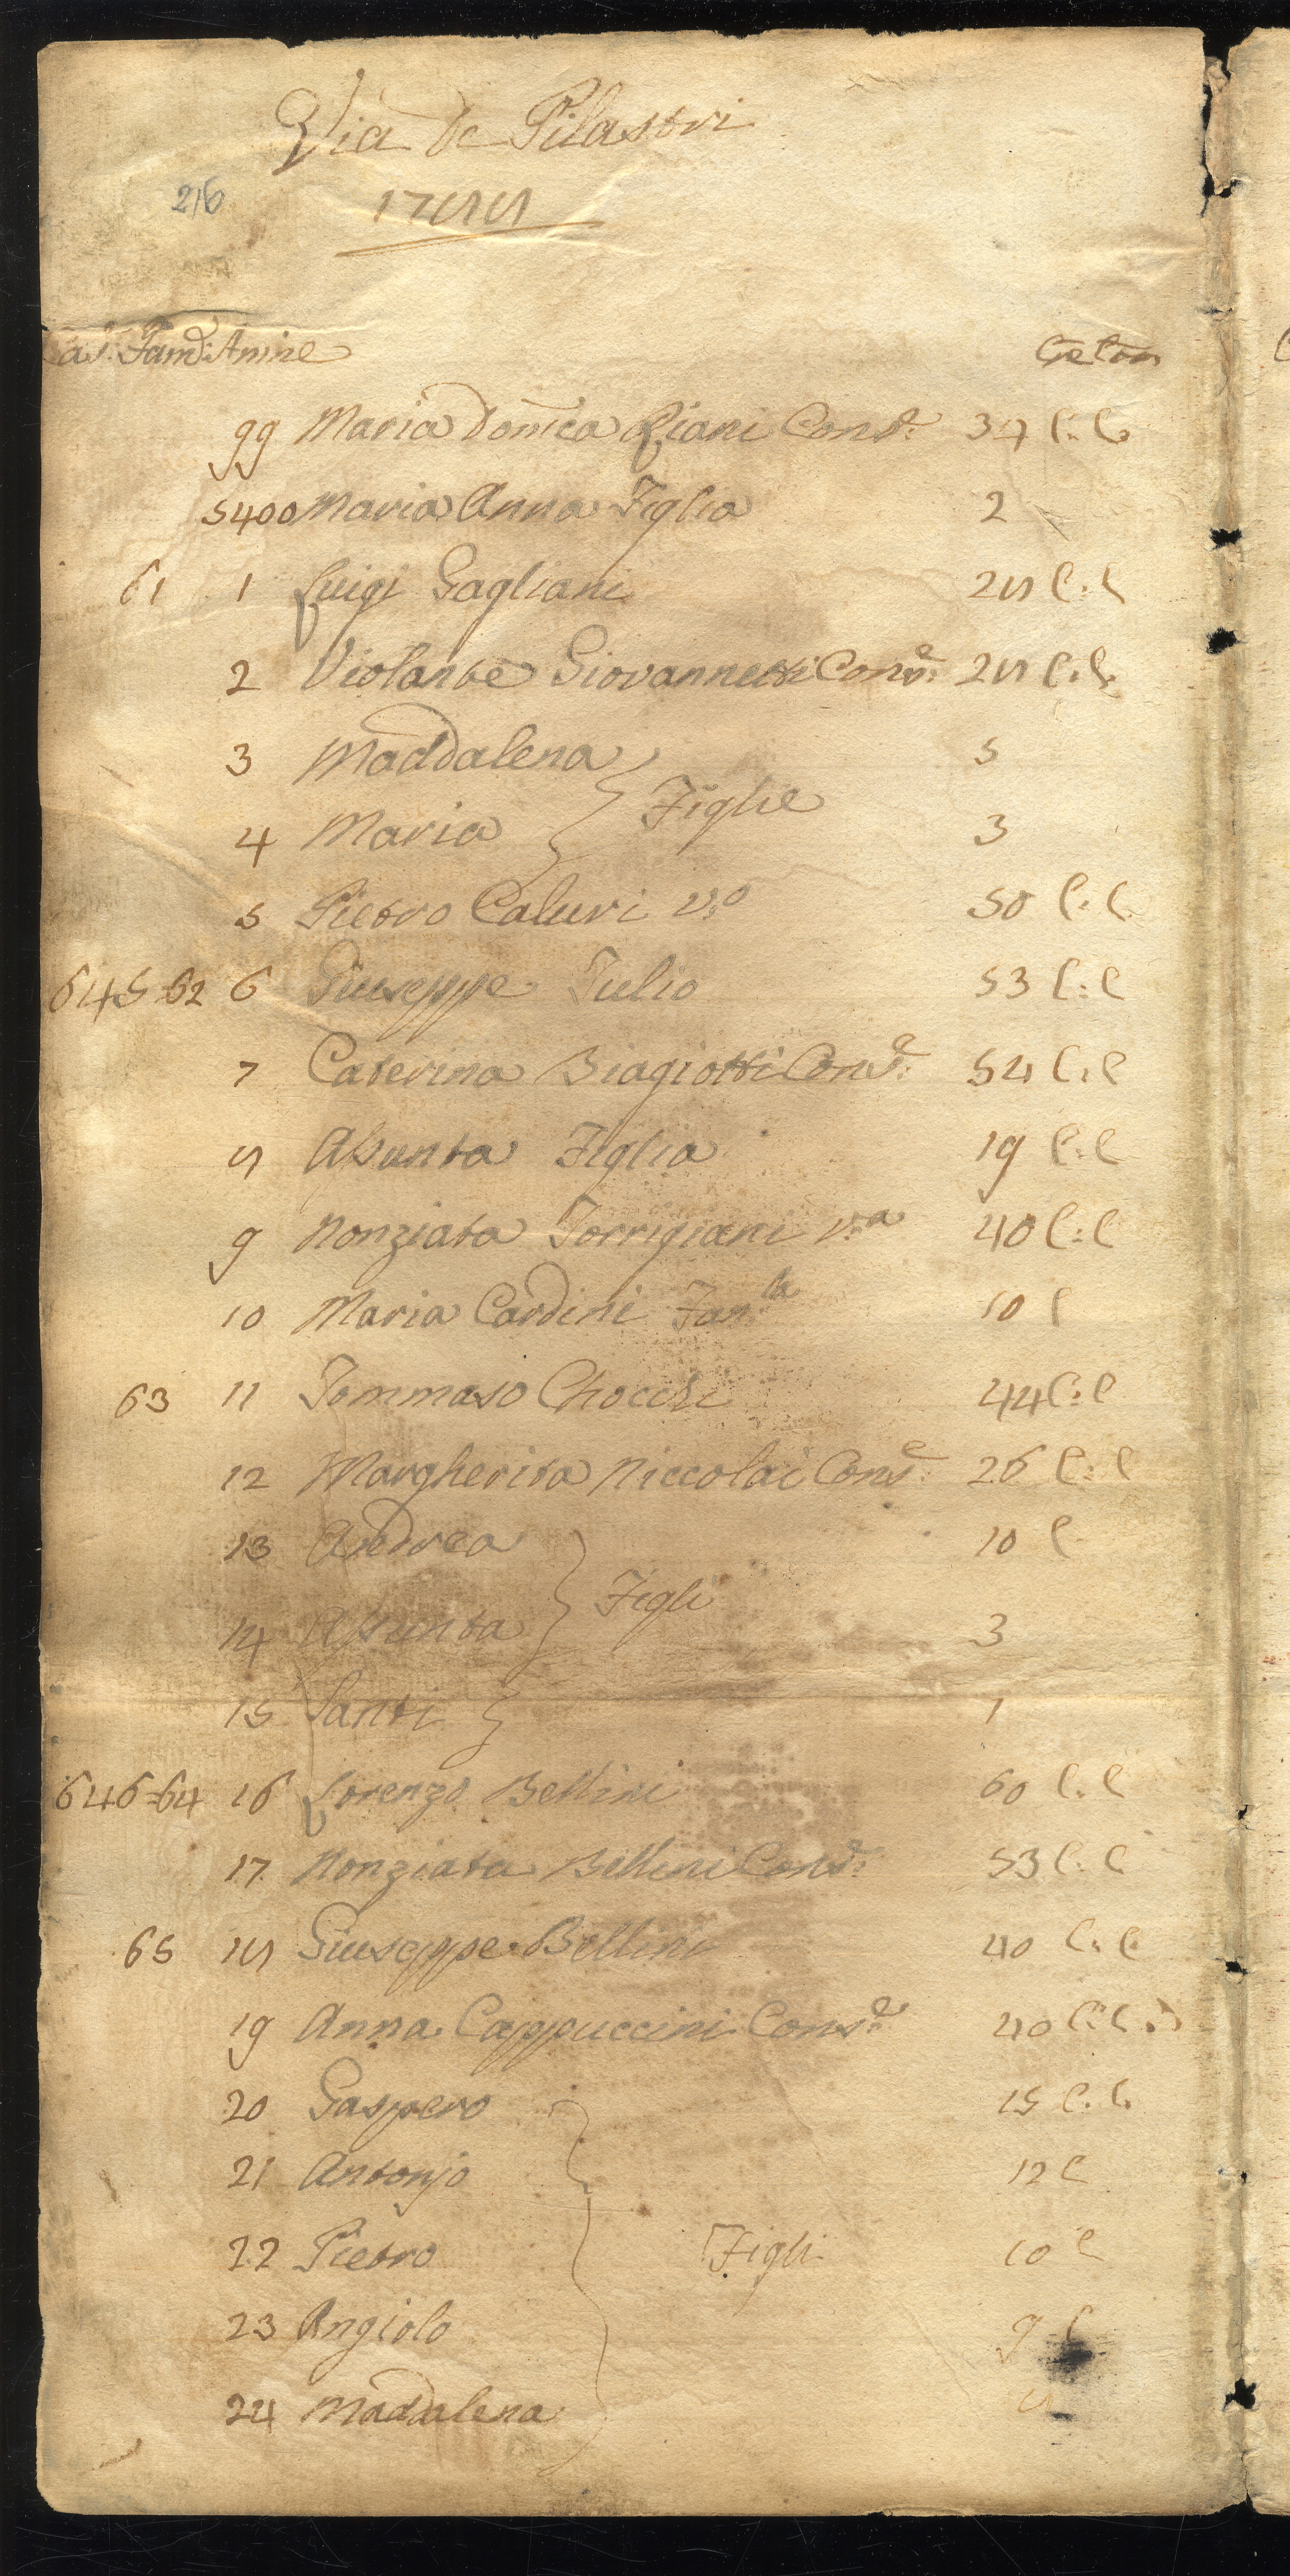 Via de Pilastri
216 1788
as. Fam: Anime Età Com
99 Maria Domca Piani Cons.e 34 C:C
5400 Maria Anna Figlia 2
61 1 Luigi Gagliani 28 C:C
2 Violante Giovannetti Cons.e 28 C:C
3 Maddalena 5
Figlie
4 Maria 3
5 Pietro Caluri v:o 50 C:C
645=62 6 Giuseppe Julio 53 C:C
7 Caterina Biagiotti Cons.e 54 C:C
8 Assunta Figlia 19 C:C
9 Nonziata Torrigiani v:a 40 C:C
10 Maria Cardini Fan.la 10 C
63 11 Tommaso Chocchi 44 C:C
12 Margherita Niccolai Cons.e 26 C:C
13 Andrea 10 C
Figli
14 Assunta 3
15 Santi 1
646=64 16 Lorenzo Bellini 60 C:C
17 Nonziata Bellini Cons.e 53 C:C
65 18 Giuseppe Bellini 40 C:C
19 Anna Cappuccini Cons.e 40 C:C
20 Gaspero 15 C:C
21 Antonjo 12 C
22 Pietro Figli 10 C
23 Angiolo 9 C
24 Maddalena 8